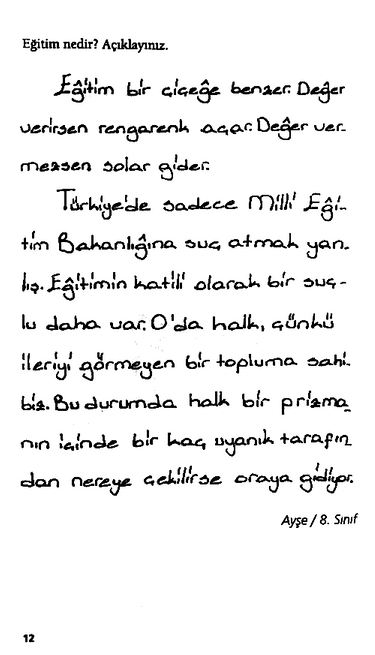 Eğitim nedir? Açıklayınız.
Eğitim bir çiçeğe benzer. Değer
verirsen rengarenk açar. Değer ver-
mezsen solar gider.
Türkiye'de sadece Milli Eği-
tim Bakanlığına suç atmak yan-
lış. Eğitimin katili olarak bir suç-
lu daha var. O'da halk, çünkü
ileriyi görmeyen bir topluma sahi-
biz. Bu durumda halk bir prizma-
nın içinde bir kaç uyanık tarafın
dan nereye çekilirse oraya gidiyor.
Ayşe / 8. Sınıf
12